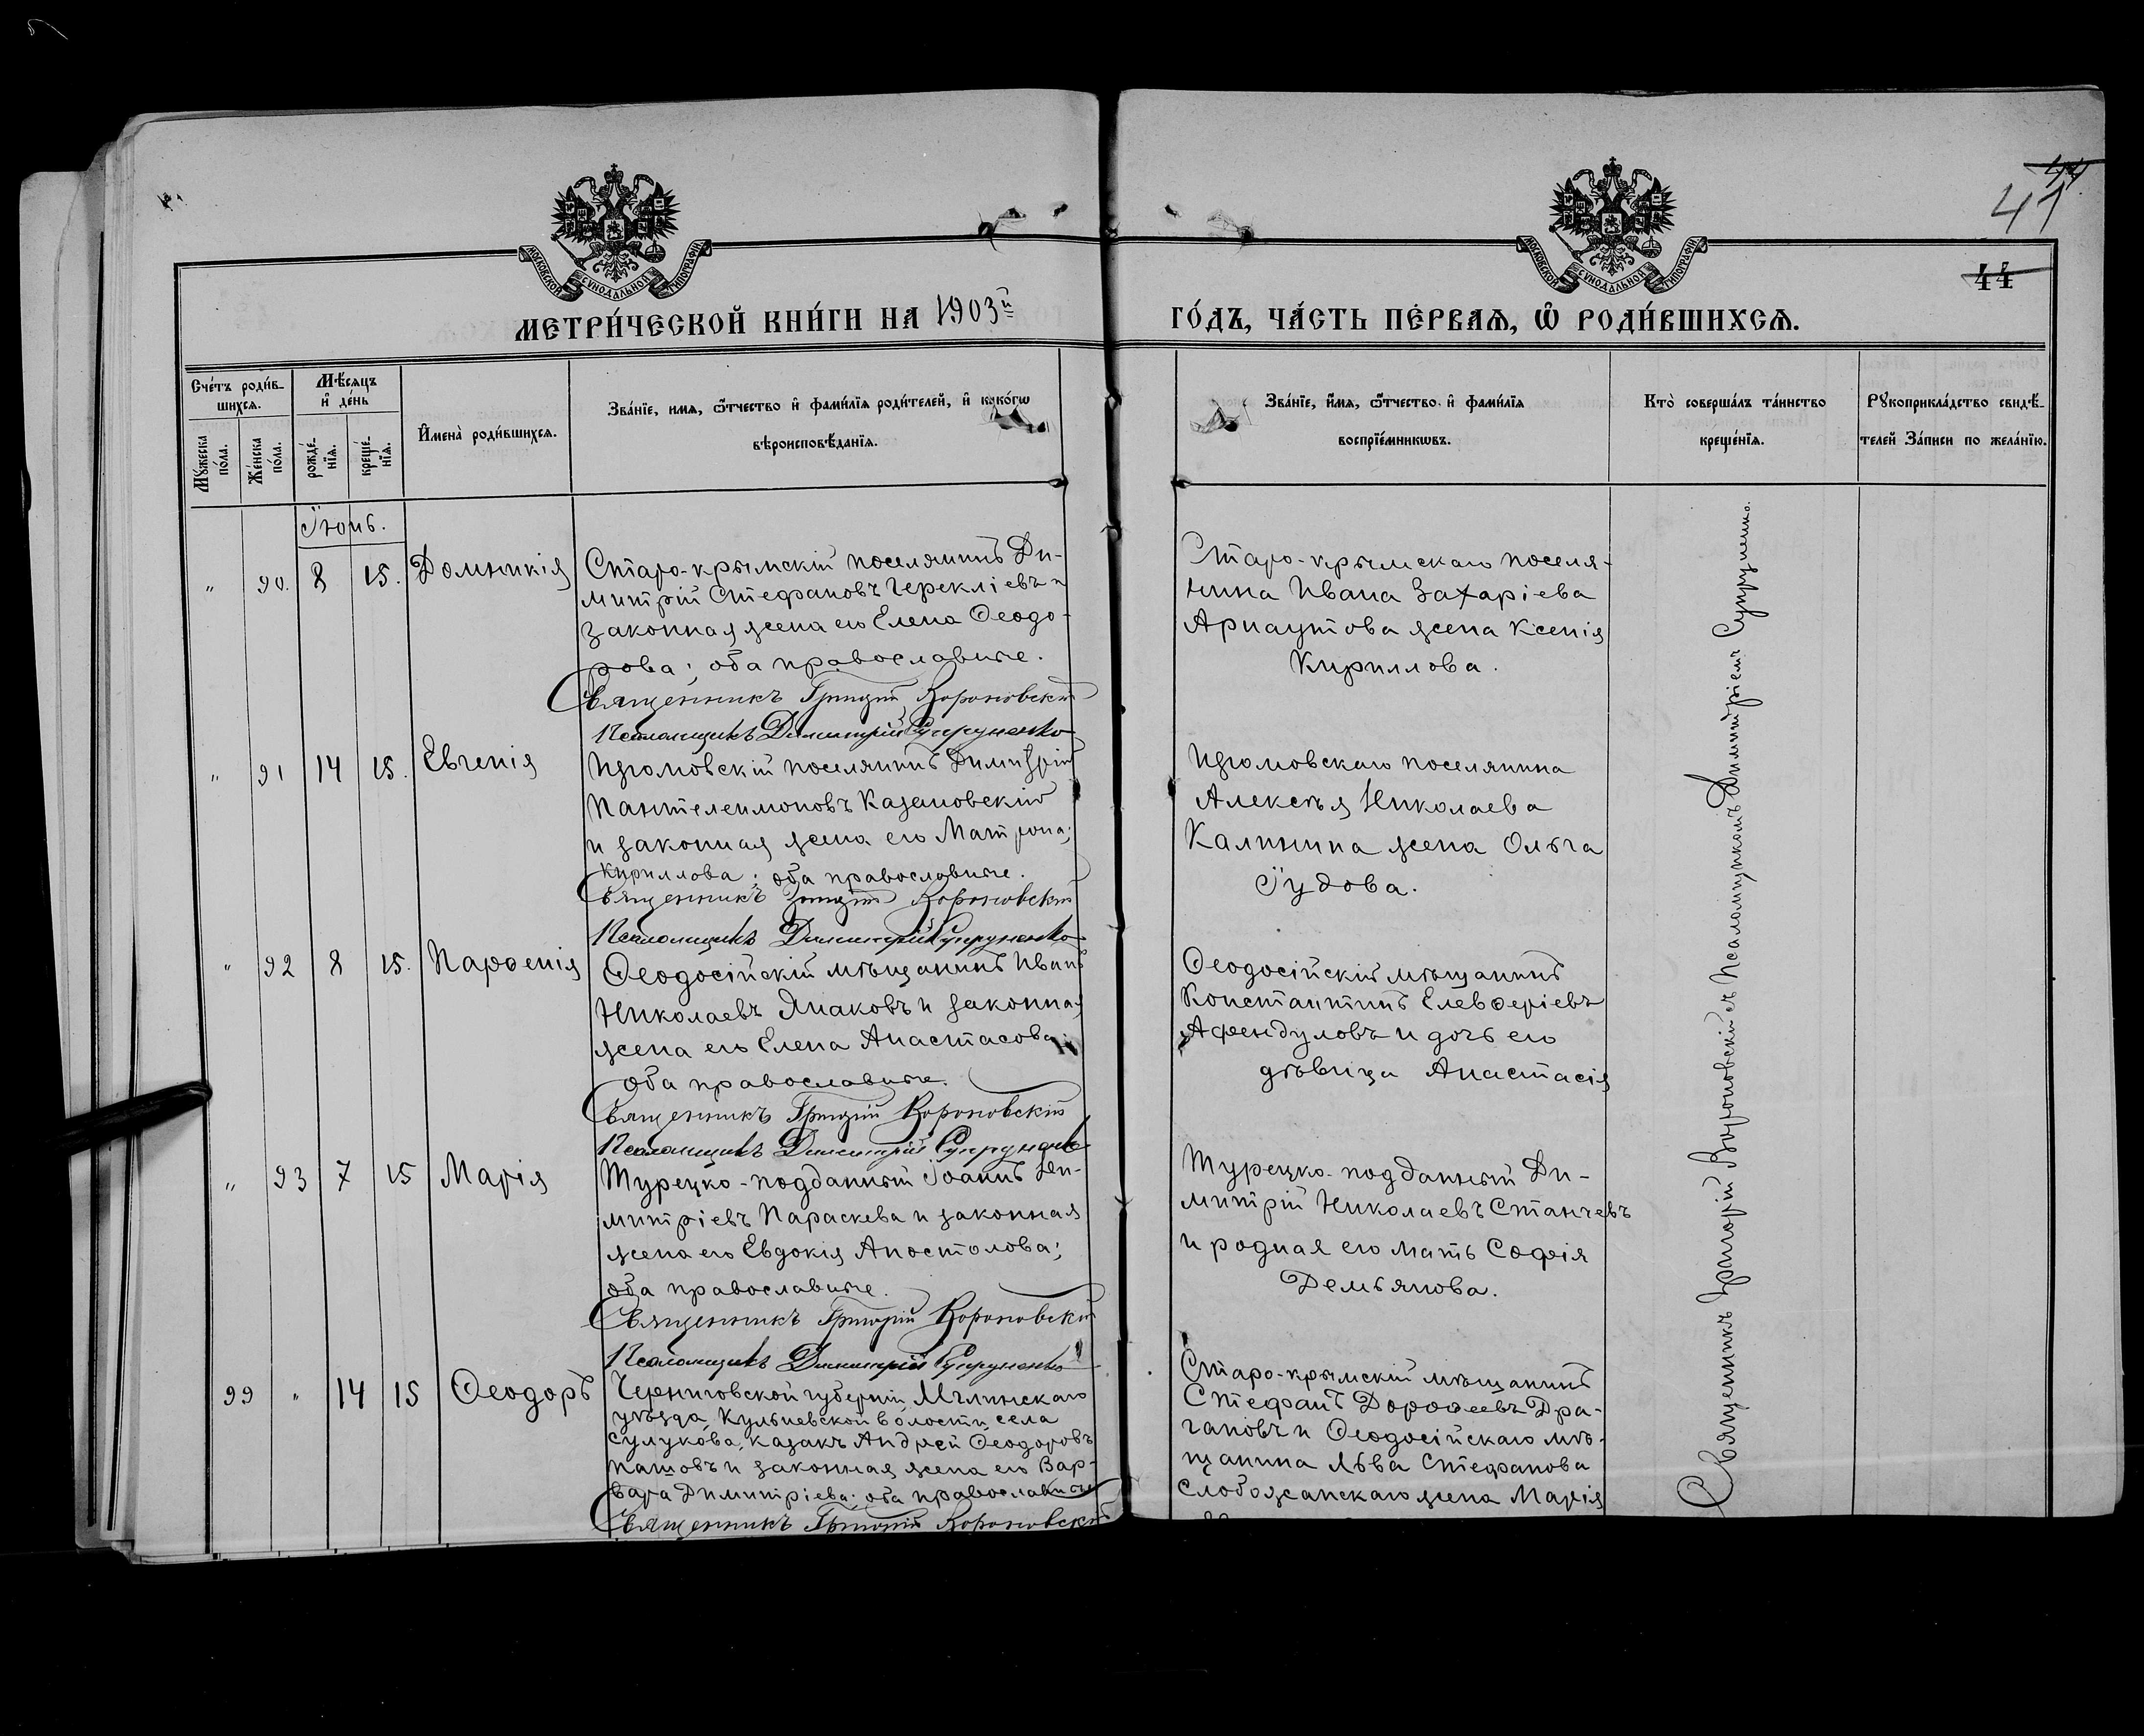 44
41
44
МОСКОВСКОЙ СУНОДАЛЬНОЙ ТИПОГРАФІИ
МОСКОВСКОЙ СУНОДАЛЬНОЙ ТИПОГРАФІИ
МЕТРИ́ЧЕСКОЙ КНИ́ГИ НА 1903й
ГО́ДЪ, ЧА́СТЬ ПЕ́РВАѦ, Ѡ҆ РОДИ́ВШИХСѦ.
Сче́тъ роди́в-
шихсѧ.
Мѣ́сѧцъ
и҆ де́нь
Мꙋ́жеска
по́ла.
Же́нска
по́ла.
рожде́-
нїѧ.
креще́-
нїѧ.
И҆мена̀ роди́вшихсѧ.
Зва́нїе, имѧ, ѻ҆́тчество и҆ фами́лїѧ роди́телей, и҆ како́гѡ
вѣроисповѣ́данїѧ.
Зва́нїе, и҆́мѧ, ѻ҆́тчество и҆ фами́лїѧ
воспрїе́мникѡвъ.
Кто̀ соверша́лъ та́инство
креще́нїѧ.
Рꙋкоприкла́дство свидѣ́-
телей За́писи по жела́нїю.
Іюнь.
" 90. 8 15. Домникія
Старо-крымскій поселянинъ Ди-
митрій Стефановъ Череклiевъ и
законная жена его Елена Ѳеодо-
рова; оба православные.
Священникъ Григорій Вороновскій
Псаломщикъ Димитрій Супруненко
Старо-крымскаго поселя-
нина Ивана Захаріева
Арнаутова жена Ксенія
Кириллова.
" 91 14 15. Евгенія
Изюмовскій поселянинъ Димитрій
Пантелеимоновъ Казановскій
и законная жена его Матрона
Кириллова; оба православные.
Священникъ Григорій Вороновскій
Псаломщикъ Димитрій Супруненко
Изюмовскаго поселянина
Алексѣя Николаева
Калинина жена Ольга
Іудова.
" 92 8 15. Парѳенія
Ѳеодосійскій мѣщанинъ Иванъ
Николаевъ Янаковъ и законная
жена его Елена Анастасова
оба православные.
Священникъ Григорій Вороновскій
Псаломщикъ Димитрій Супруненко
Ѳеодосійскій мѣщанинъ
Константинъ Елевѳеріевъ
Афендуловъ и дочь его
дѣвица Анастасія
" 93 7 15 Марія
Турецко-подданный Іоаннъ Ди-
митріевъ Параскева и законная
жена его Евдокія Апостолова;
оба православные.
Священникъ Григорій Вороновскій
Псаломщикъ Димитрій Супруненко
Турецко-подданный Ди-
митрій Николаевъ Станчевъ
и родная его мать Софія
Демьянова.
99 " 14 15 Ѳеодоръ
Черниговской губерніи, Мглинскаго
уѣзда, Кульневской волости, села
Сулукова, казакъ Андрей Ѳеодоровъ
Пашовъ и законная жена его Вар-
вара Димитріева; оба православные
Священникъ Григорій Вороновскій
Старо-крымскій мѣщанинъ
Стефанъ Дороѳеевъ Дра-
гановъ и Ѳеодосійскаго мѣ-
щанина Льва Стефанова
Слобожанскаго жена Марія
Священникъ Григорій Вороновскій съ Псаломщикомъ Димитріемъ Супруненко.